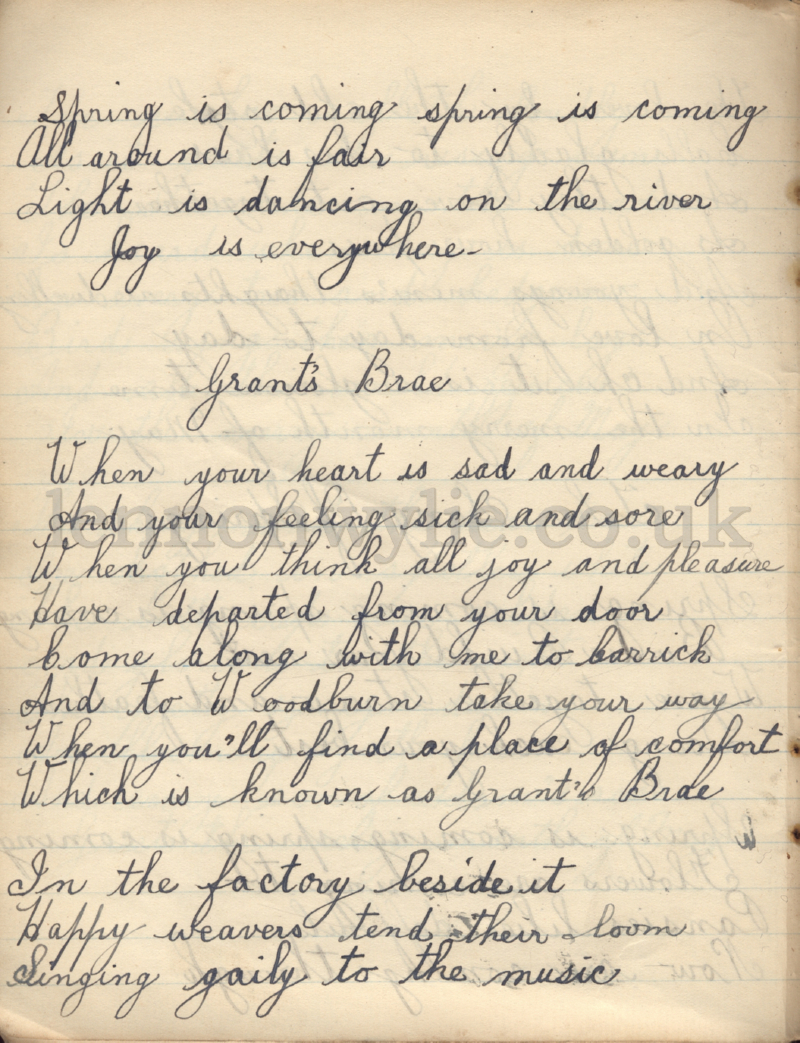 Spring is coming spring is coming
All around is fair
Light is dancing on the river
Joy is everywhere-
Grant's Brae
When your heart is sad and weary
And your feeling sick and sore
When you think all joy and pleasure
Have departed from your door
Come along with me to Carrick
And to Woodburn take your way
When you'll find a place of comfort
Which is known as Grant's Brae
In the factory beside it
Happy weavers tend their loom
Singing gaily to the music
lennonwylie.co.uk